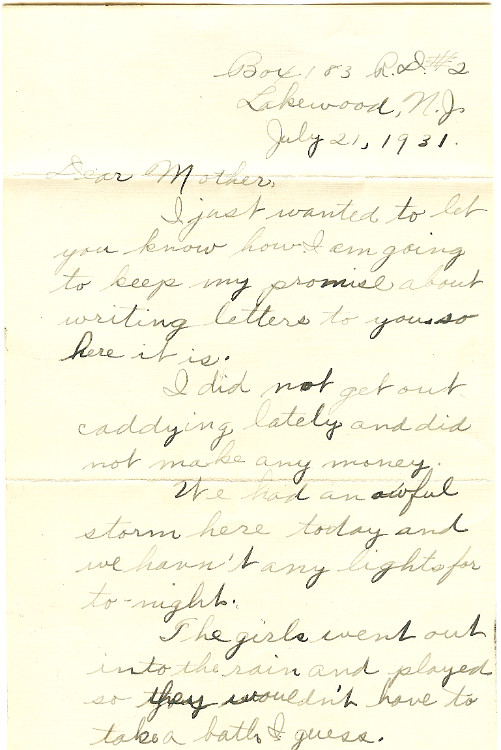 Box 183 R.D. #2
Lakewood, N.J.
July 21, 1931.
Dear Mother,
I just wanted to let
you know how I am going
to keep my promise about
writing letters to you so
here it is.
I did not get out
caddying lately and did
not make any money.
We had an awful
storm here today and
we havn't any lights for
to-night.
The girls went out
into the rain and played
so they wouldn't have to
take a bath I guess.